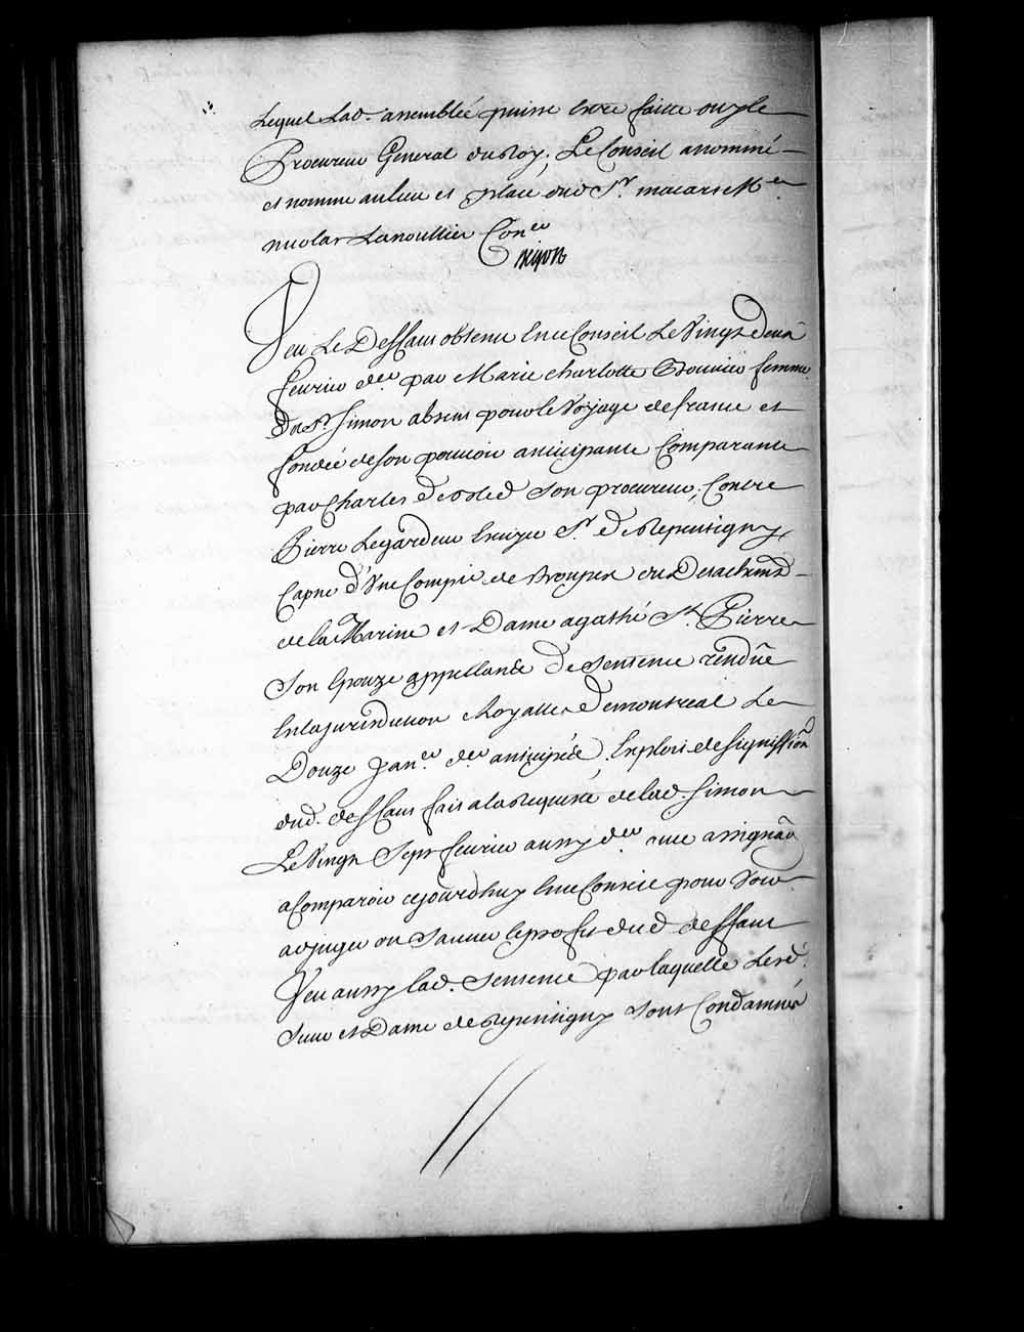 Lequel Lad. assemblée puisse Estre faitte ouy le
Procureur General du Roy; Le Conseil a nommé
et nomme au lieu et place dud Sr. macart Me
nicolas Lanoullier Coner
Bigon
Veu Le Deffaut obtenu En ce Conseil Le Vingt deux
feurier der par Marie charlotte femme
du Sr. Simon absent pour le Voyage de france et
fondée de son pouuoir anticipante Comparante
par Charles son procureur; Contre
Pierre Legardeur Ecuyer Sr. de Repentigny
Capne d'Une Compie de Trouppes du Detachemt
de la Marine et Dame agathe St. Pierre
Son Epouze appellants de Sentence rendüe
En la jurisdiction Royalle de montreal Le
Douze Janer der anticipée, Exploit de signiffion
dud. deffaut fait a la Requeste de lad. Simon
Le Vingt Sept feurier aussy der auec assignaon
a Comparoir cejourdhuy En ce Conseil pour Voir
adjuger ou Sauuer le proffit dud deffaut
Veu aussy lad. Sentence par laquelle Lesd.
Sieur et Dame de Repentigny Sont Condamnés